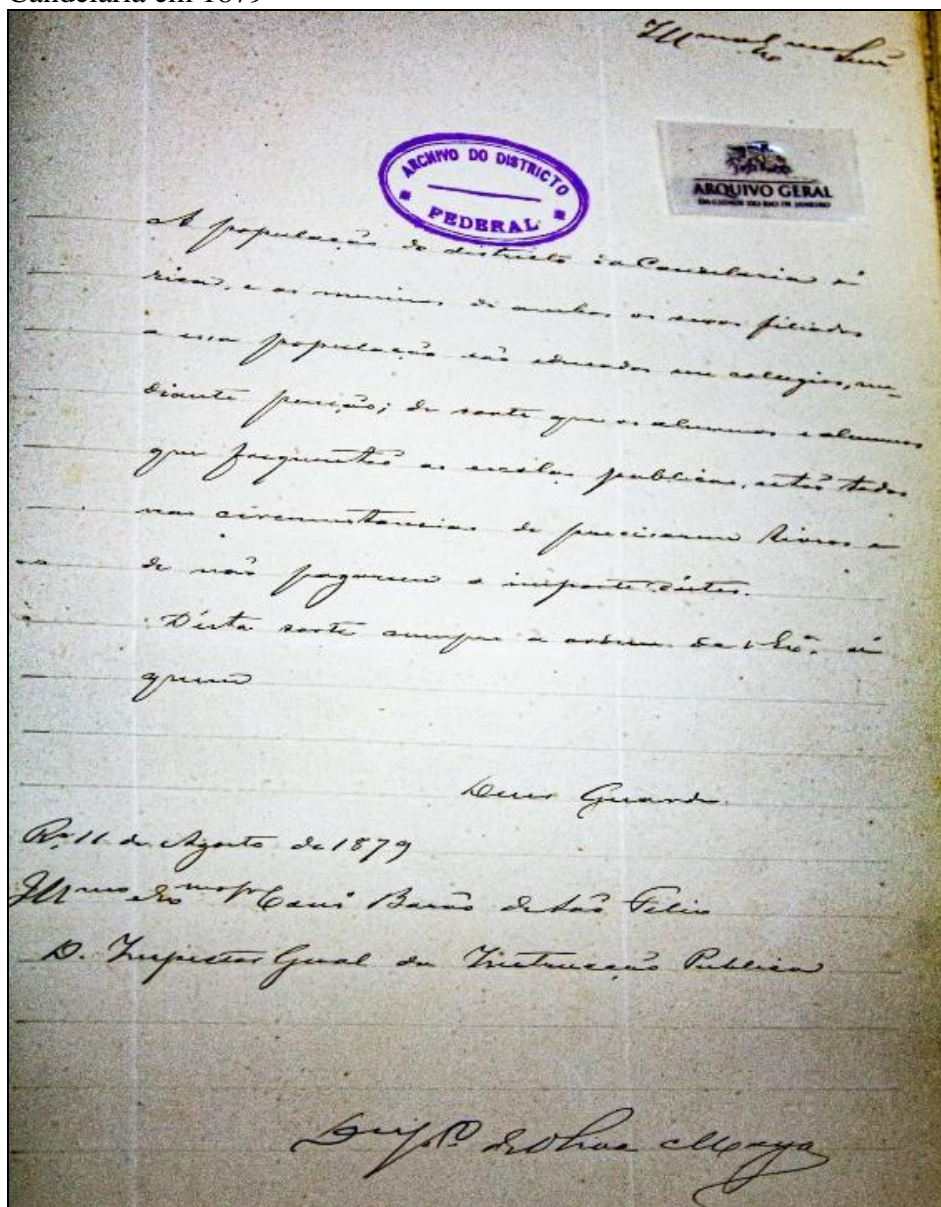 Candelária em 1879
Illmo e Exmo Snr
ARCHIVO DO DISTRICTO
FEDERAL
ARQUIVO GERAL
DA CIDADE DO RIO DE JANEIRO
A população do districto da Candelaria é
rica, e os meninos de ambos os sexos filiados
a essa população são educados em collegios, me-
diante pensão; de sorte que os alumnos e alumnas
que frequentão as escólas publicas, estão todos
nas circumstancias de precisarem livros e
de não pagarem o importe d'estes.
D'esta sorte cumpro a ordem de V. Exª. á
quem
Deus Guarde.
Rº 11 de Agosto de 1879
Illmo e Exmo Barão de São Felix
D. Inspector Geral da Instrucção Publica
Maya